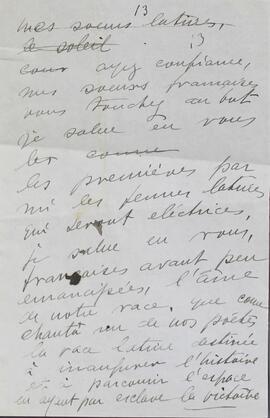 13
mes sœurs latines,
le soleil 13
cour ayez confiance,
mes sœurs françaises
vous touchez au but
je salue en vous
les comme
les premières par
mi les femmes latines
qui seront eléctrices,
je salue en vous,
françaises avant peu
emancipées, l'âme
de notre race, que comme
chanta un de nos poètes
la race latine destinée
à inaugurer l'histoire
et à parcourir l'espace
en ayant par esclave la victoire